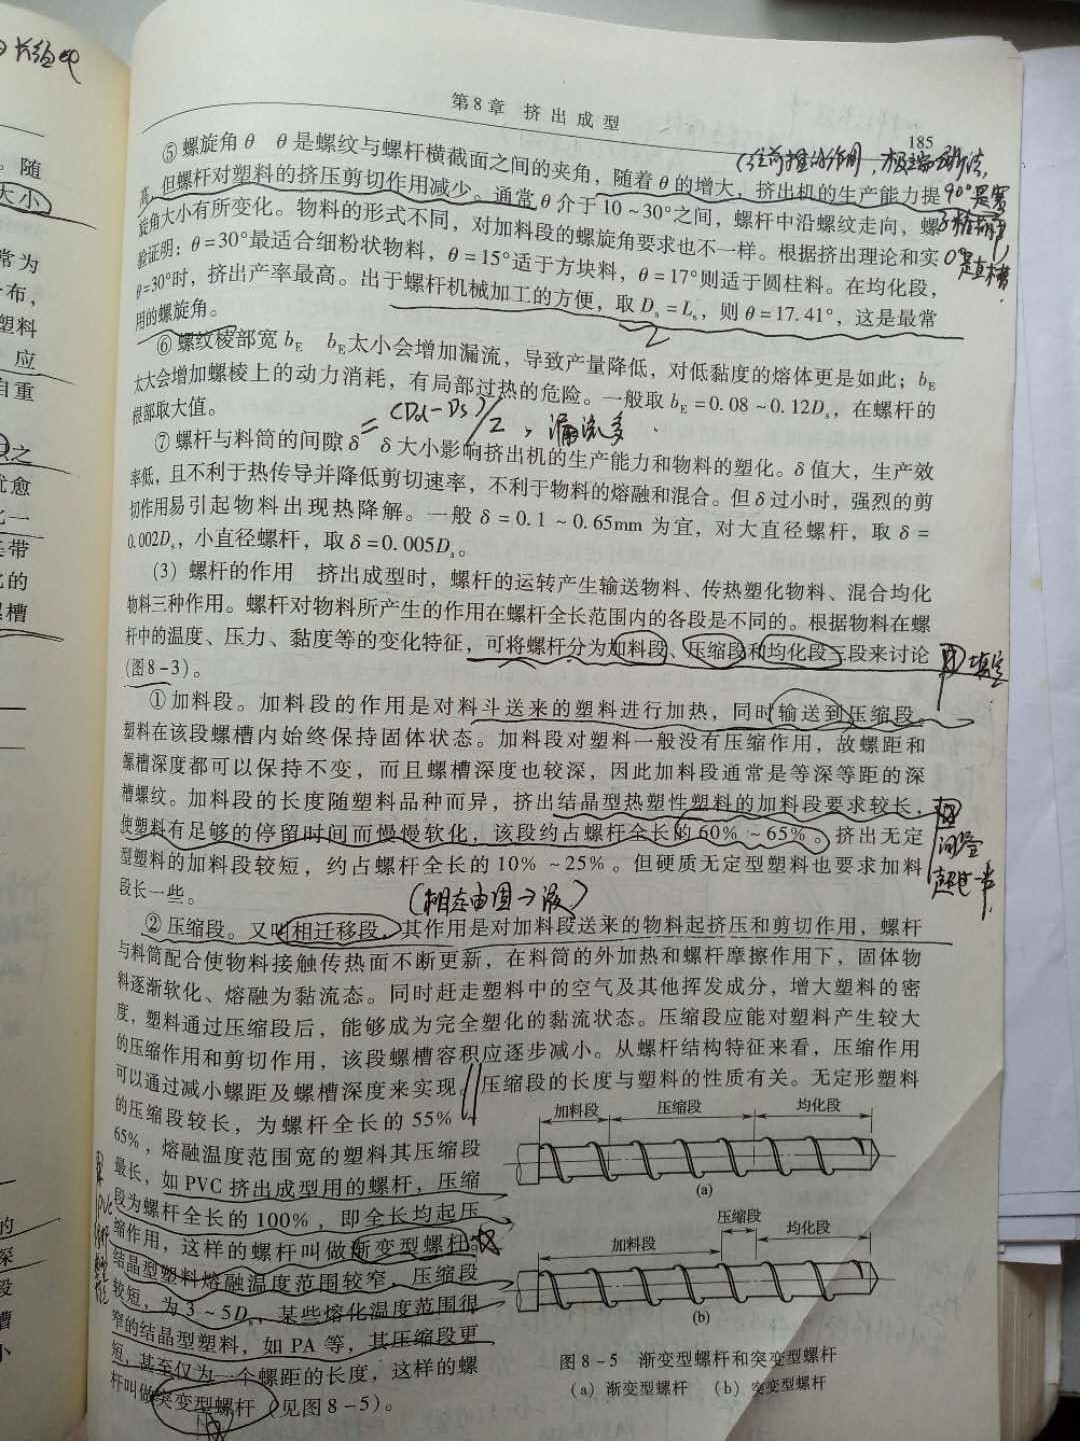 第8章 挤出成型
185
⑤ 螺旋角 θ θ 是螺纹与螺杆横截面之间的夹角，随着 θ 的增大，挤出机的生产能力提
高，但螺杆对塑料的挤压剪切作用减少。通常 θ 介于 10～30°之间，螺杆中沿螺纹走向，螺
旋角大小有所变化。物料的形式不同，对加料段的螺旋角要求也不一样。根据挤出理论和实
验证明：θ=30°最适合细粉状物料，θ=15°适于方块料，θ=17°则适于圆柱料。在均化段，
θ=30°时，挤出产率最高。出于螺杆机械加工的方便，取 Ds=Ls，则 θ=17.41°，这是最常
用的螺旋角。
⑥ 螺纹棱部宽 bE bE 太小会增加漏流，导致产量降低，对低黏度的熔体更是如此；bE
太大会增加螺棱上的动力消耗，有局部过热的危险。一般取 bE=0.08～0.12Ds，在螺杆的
根部取大值。
=(Dd-Ds)/2，漏流多.
⑦ 螺杆与料筒的间隙 δ δ 大小影响挤出机的生产能力和物料的塑化。δ 值大，生产效
率低，且不利于热传导并降低剪切速率，不利于物料的熔融和混合。但 δ 过小时，强烈的剪
切作用易引起物料出现热降解。一般 δ=0.1～0.65mm 为宜，对大直径螺杆，取 δ=
0.002Ds，小直径螺杆，取 δ=0.005Ds。
(3) 螺杆的作用 挤出成型时，螺杆的运转产生输送物料、传热塑化物料、混合均化
物料三种作用。螺杆对物料所产生的作用在螺杆全长范围内的各段是不同的。根据物料在螺
杆中的温度、压力、黏度等的变化特征，可将螺杆分为加料段、压缩段和均化段三段来讨论
填空
(图8-3)。
① 加料段。加料段的作用是对料斗送来的塑料进行加热，同时输送到压缩段。
塑料在该段螺槽内始终保持固体状态。加料段对塑料一般没有压缩作用，故螺距和
螺槽深度都可以保持不变，而且螺槽深度也较深，因此加料段通常是等深等距的深
槽螺纹。加料段的长度随塑料品种而异，挤出结晶型热塑性塑料的加料段要求较长，
使塑料有足够的停留时间而慢慢软化，该段约占螺杆全长的 60%～65%。挤出无定
型塑料的加料段较短，约占螺杆全长的 10%～25%。但硬质无定型塑料也要求加料
段长一些。
(相态由固→液)
② 压缩段。又叫相迁移段，其作用是对加料段送来的物料起挤压和剪切作用，螺杆
与料筒配合使物料接触传热面不断更新，在料筒的外加热和螺杆摩擦作用下，固体物
料逐渐软化、熔融为黏流态。同时赶走塑料中的空气及其他挥发成分，增大塑料的密
度，塑料通过压缩段后，能够成为完全塑化的黏流状态。压缩段应能对塑料产生较大
的压缩作用和剪切作用，该段螺槽容积应逐步减小。从螺杆结构特征来看，压缩作用
可以通过减小螺距及螺槽深度来实现。压缩段的长度与塑料的性质有关。无定形塑料
的压缩段较长，为螺杆全长的 55%～
65%，熔融温度范围宽的塑料其压缩段
最长，如 PVC 挤出成型用的螺杆，压缩
段为螺杆全长的 100%，即全长均起压
缩作用，这样的螺杆叫做渐变型螺杆。
结晶型塑料熔融温度范围较窄，压缩段
较短，为 3～5Ds，某些熔化温度范围很
窄的结晶型塑料，如 PA 等，其压缩段更
短，甚至仅为一个螺距的长度，这样的螺
杆叫做突变型螺杆（见图8-5）。
加料段 压缩段 均化段
(a)
加料段 压缩段 均化段
(b)
图8-5 渐变型螺杆和突变型螺杆
(a) 渐变型螺杆 (b) 突变型螺杆